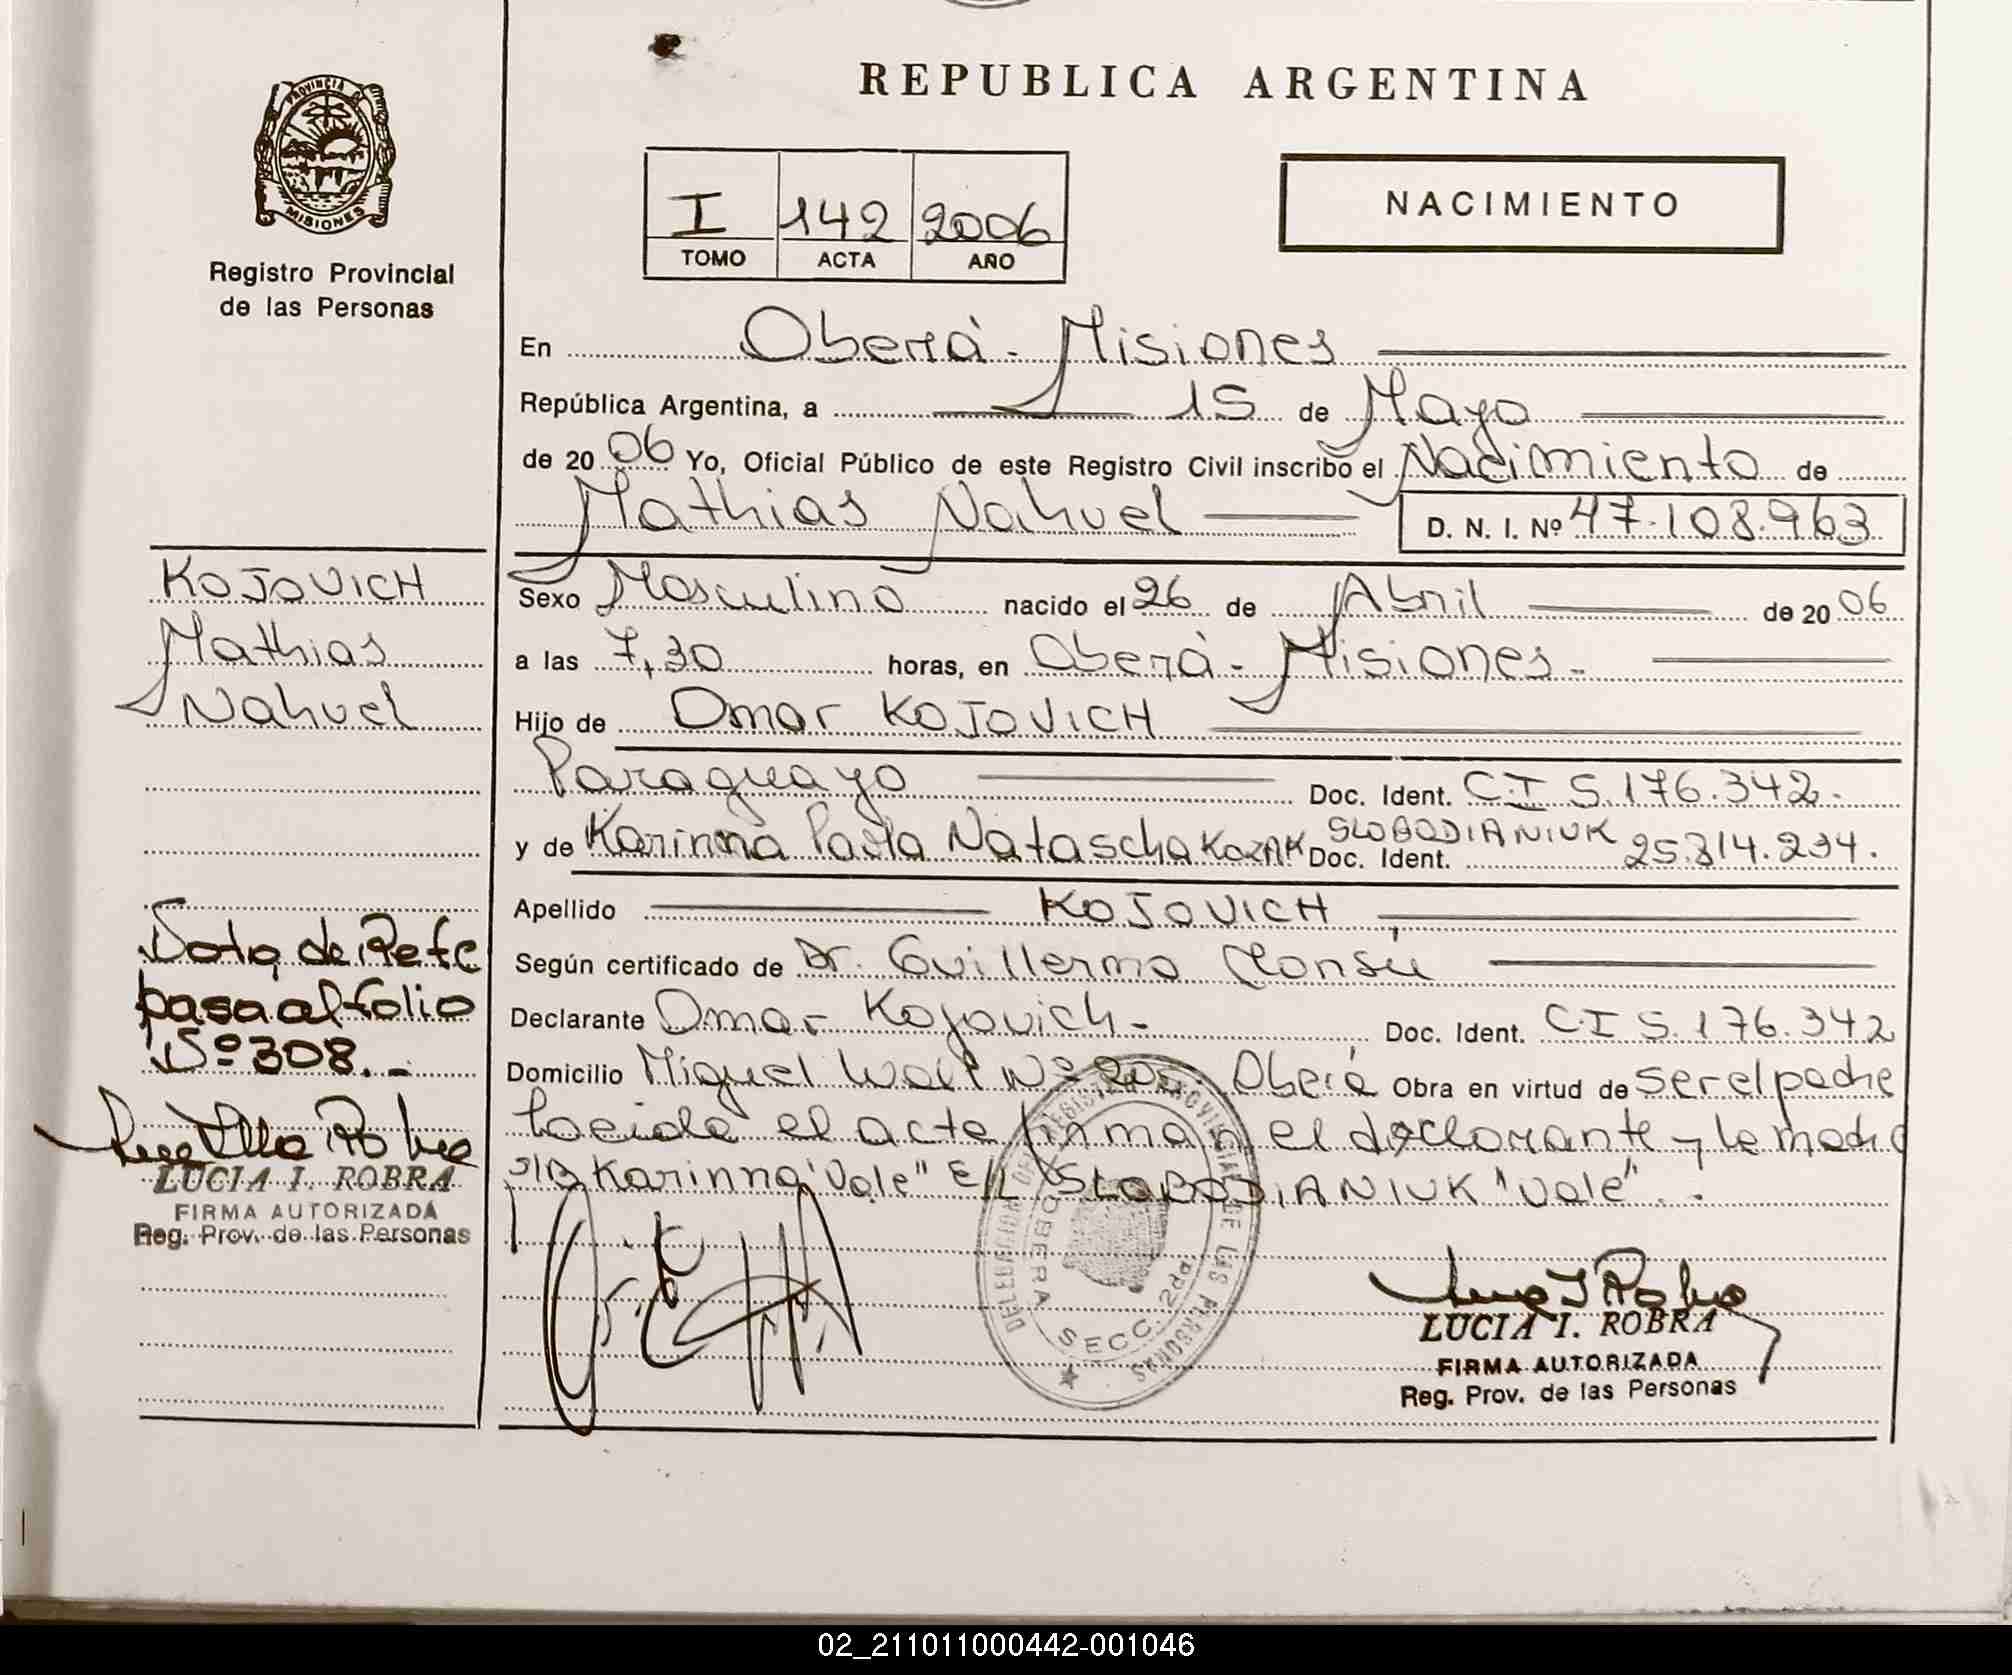 REPUBLICA ARGENTINA
PROVINCIA DE MISIONES
Registro Provincial
de las Personas
I 142 2006
TOMO ACTA AÑO
NACIMIENTO
En Oberá - Misiones
República Argentina, a 15 de Mayo
de 2006 Yo, Oficial Público de este Registro Civil inscribo el Nacimiento de
Mathias Nahuel D. N. I. Nº 47.108.963
Sexo Masculino nacido el 26 de Abril de 2006
a las 7,30 horas, en Oberá - Misiones -
Hijo de Omar KOJOVICH
Paraguayo Doc. Ident. C I 5.176.342.
y de Karinna Paola Natascha KOZAK SLOBODIANIUK Doc. Ident. 25.314.234.
Apellido KOJOVICH
Según certificado de Dr. Guillermo
Declarante Omar Kojovich - Doc. Ident. C I 5.176.342
Domicilio Miguel Nº Oberá Obra en virtud de ser el padre
Leida el acta firman el declarante y la madre
S/B Karinna "Vale" E/L SLOBODIANIUK "Vale".
KOJOVICH
Mathias
Nahuel
Nota de Refe
pasa al folio
Nº 308.-
LUCIA I. ROBRA
FIRMA AUTORIZADA
Reg. Prov. de las Personas
DELEGACION DEL REGISTRO PROVINCIAL DE LAS PERSONAS
OBERA SECC. 2da
LUCIA I. ROBRA
FIRMA AUTORIZADA
Reg. Prov. de las Personas
02_211011000442-001046